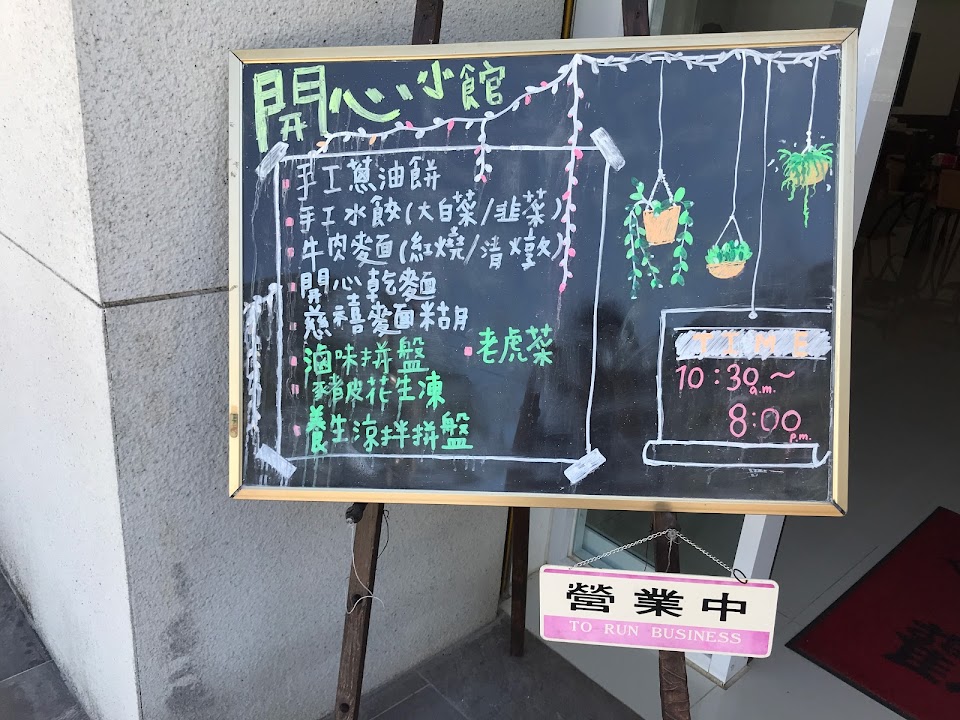 開心小館
手工蔥油餅
手工水餃(大白菜/韭菜)
牛肉麥面(紅燒/清燉)
開心乾麵
慈禧麥面糊
滷味拼盤
老虎菜
豬皮花生凍
養生涼拌拼盤
TIME
10:30a.m.~
8:00p.m.
營業中
TO RUN BUSINESS